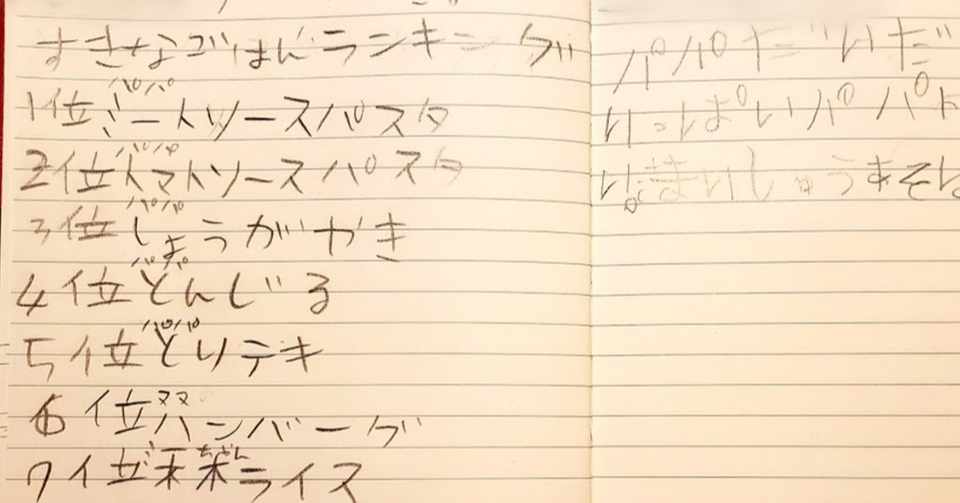 すきなごはんランキング
パパ
1位ミートソースパスタ
パパ
2位トマトソースパスタ
パパ
3位しょうがやき
パパ
4位とんじる
パパ
5位とりテキ
ママ
6位ハンバーグ
7位
ライス
パパだいだ
いっぱいパパト
まいしゅうあそ